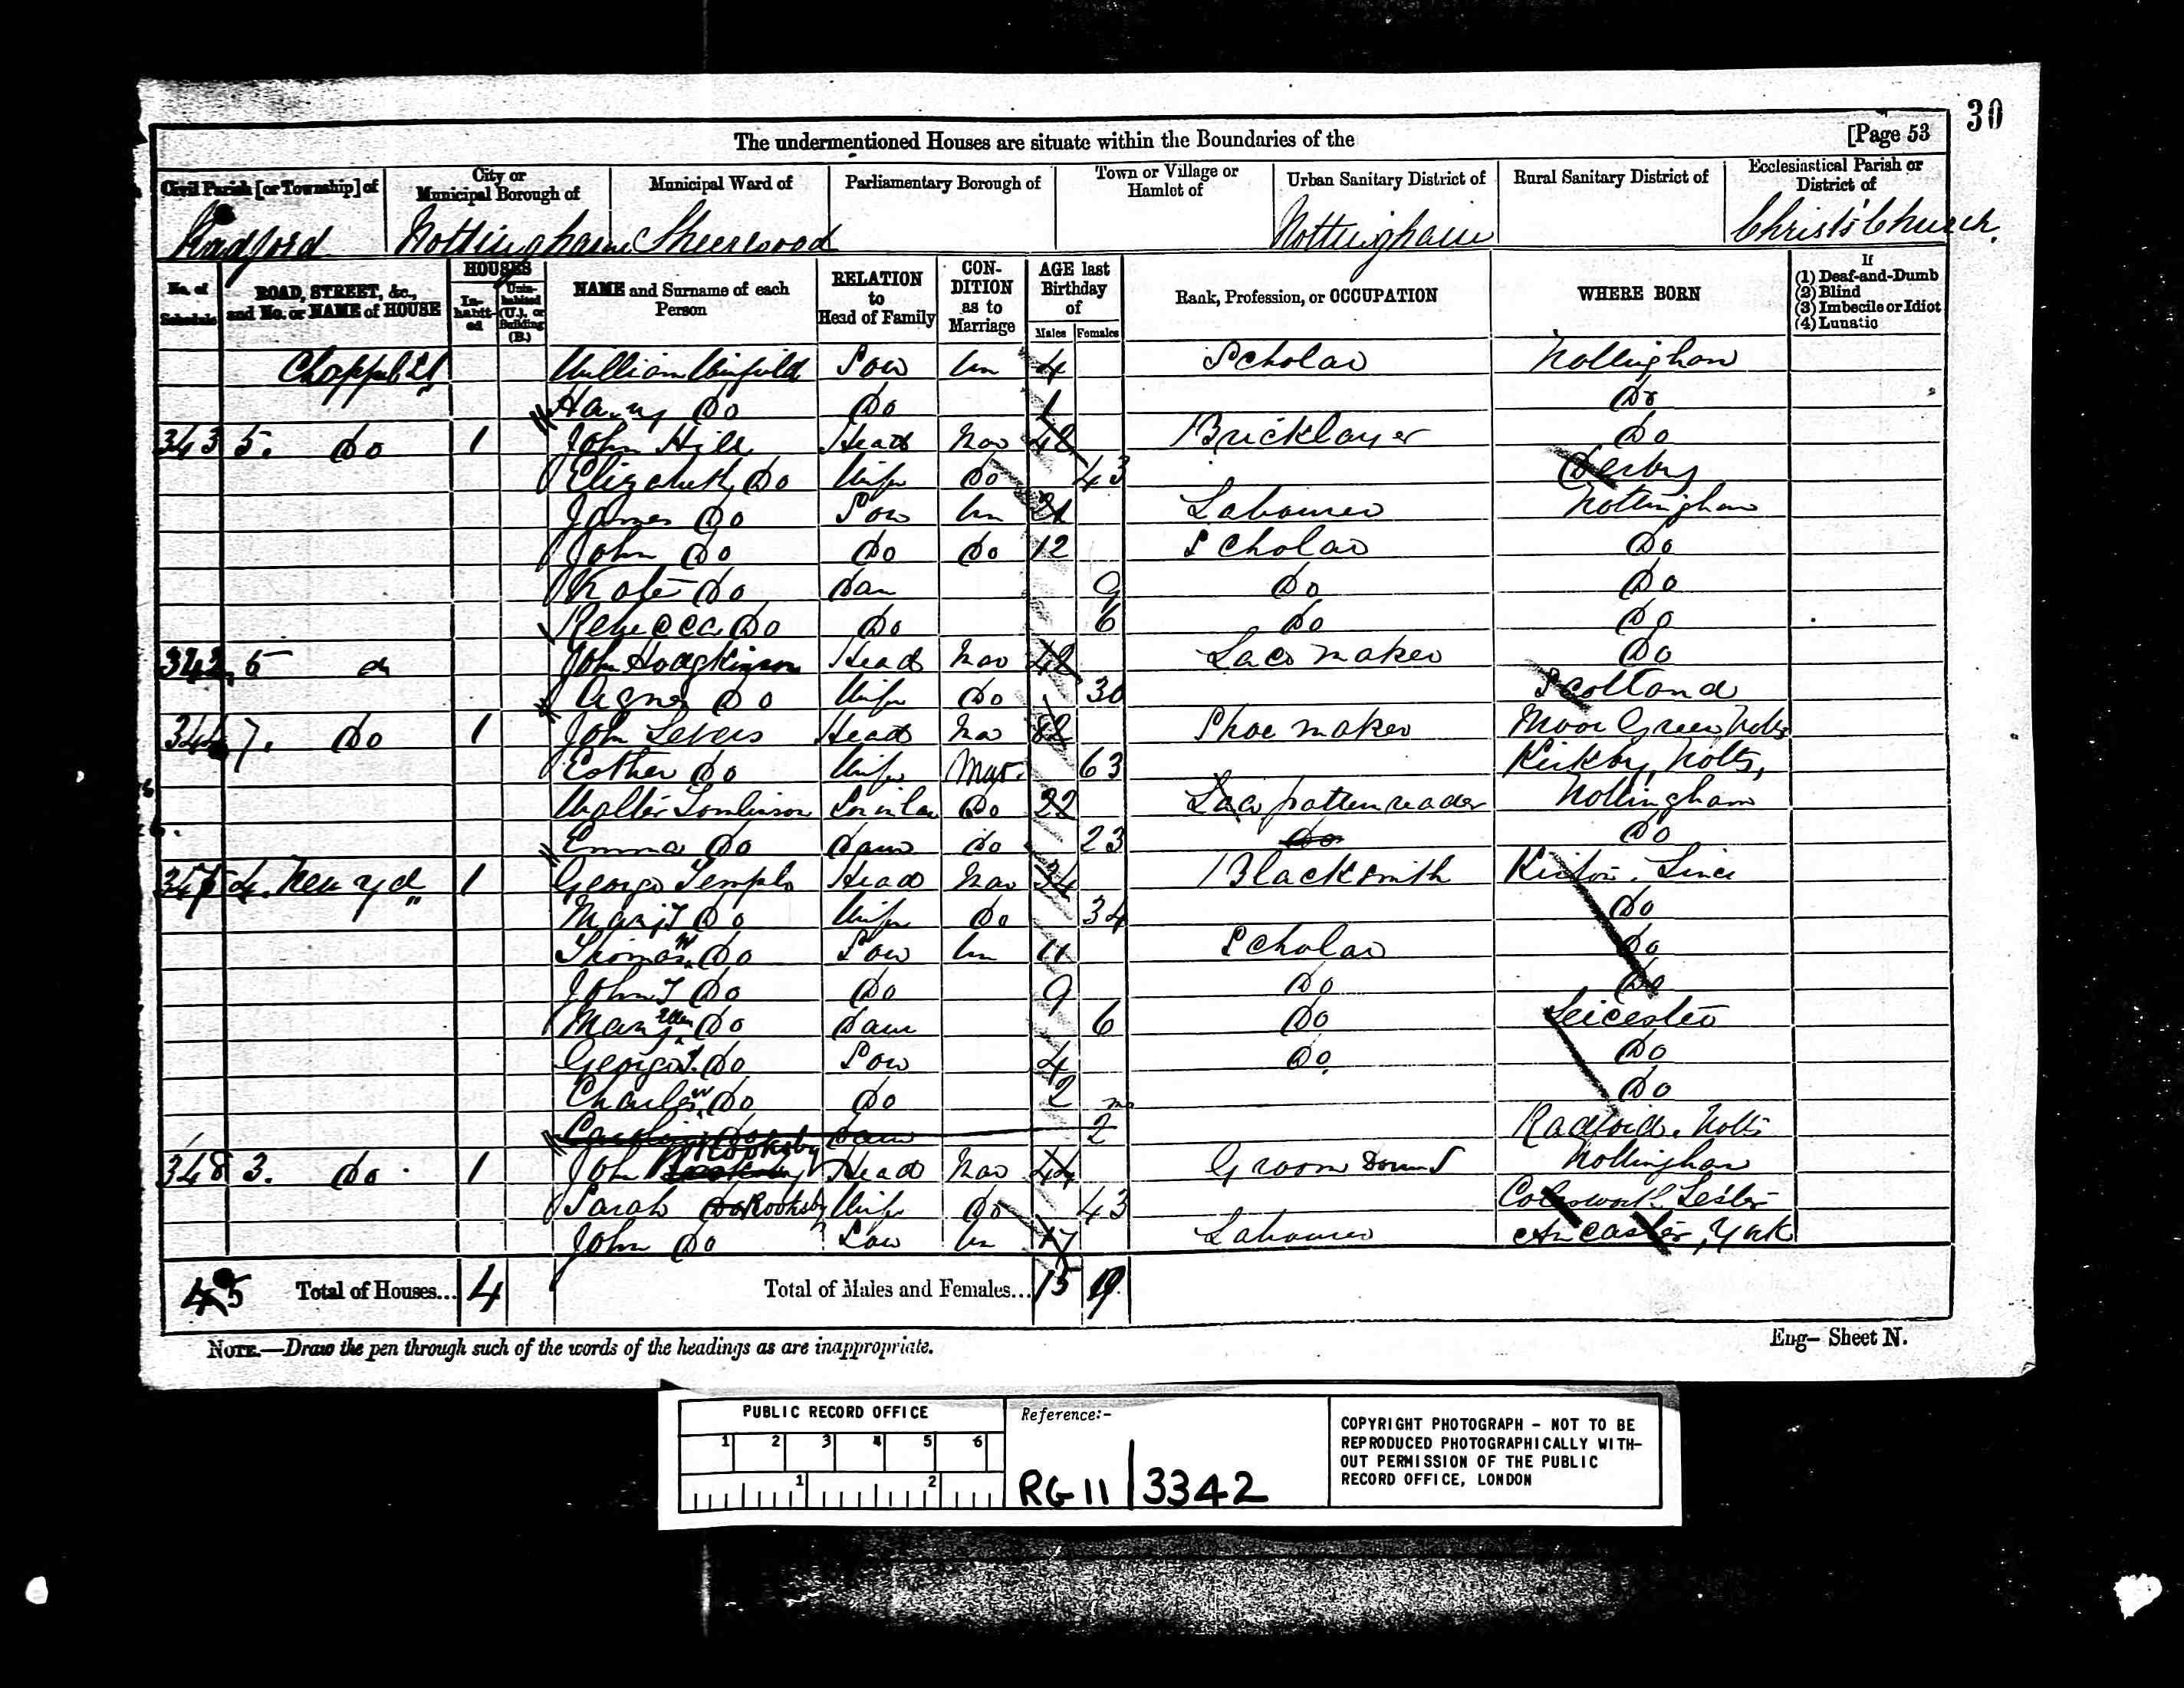 30
The undermentioned Houses are situate within the Boundaries of the [Page 53
Civil Parish [or Township] of City or Municipal Borough of Municipal Ward of Parliamentary Borough of Town or Village or Hamlet of Urban Sanitary District of Rural Sanitary District of Ecclesiastical Parish or District of
Radford Nottingham Sheerwood Nottingham Christs' Church.
No. of Schedule ROAD, STREET, &c., and No. or NAME of HOUSE HOUSES Inhabited Uninhabited (U.), or Building (B.) NAME and Surname of each Person RELATION to Head of Family CONDITION as to Marriage AGE last Birthday of Males Females Rank, Profession, or OCCUPATION WHERE BORN If (1) Deaf-and-Dumb (2) Blind (3) Imbecile or Idiot (4) Lunatic
Chappel St William Winfield Son Un 4 Scholar Nottingham
Harry Do Do 1 Do
343 5. Do 1 John Hill Head Mar 48 Bricklayer Do
Elizabeth Do Wife Do 43 Derby
James Do Son Un 21 Labourer Nottingham
John Do Do Do 12 Scholar Do
Kate Do Dau 9 Do Do
Rebecca Do Do 6 Do Do
342 5 d John Hodgkinson Head Mar 48 Lace maker Do
Agnes Do Wife Do 30 Scotland
344 7. Do 1 John Levers Head Ma 82 Shoe maker Moor Green Notts
Esther Do Wife Mar. 63 Kirkby, Notts,
Walter Tomlinson Son in law Do 22 Lace pattern reader Nottingham
Emma Do Daur Do 23 Do Do
4. New yd 1 George Temple Head Mar 34 Blacksmith Kirton. Linc
Mary J Do Wife Do 34 Do
Thomas W Do Son Un 11 Scholar Do
John T Do Do 9 Do Do
Mary Ellen Do Daur 6 Do Leicester
George Do Son 4 Do. Do
Charles W Do Do 2 Do
Do Daur 2 mo Radford. Notts
348 3. Do 1 John Rooksby Head Mar 44 Groom Dom S Nottingham
Sarah Do Rooksby Wife Do 43 Colesworth Lester
John Do Son Un 17 Labourer Ancaster, York
45 Total of Houses... 4 Total of Males and Females... 15 9
NOTE.—Draw the pen through such of the words of the headings as are inappropriate.
Eng— Sheet N.
PUBLIC RECORD OFFICE
1 2 3 4 5 6
1 2
Reference:-
RG 11 / 3342
COPYRIGHT PHOTOGRAPH - NOT TO BE
REPRODUCED PHOTOGRAPHICALLY WITH-
OUT PERMISSION OF THE PUBLIC
RECORD OFFICE, LONDON